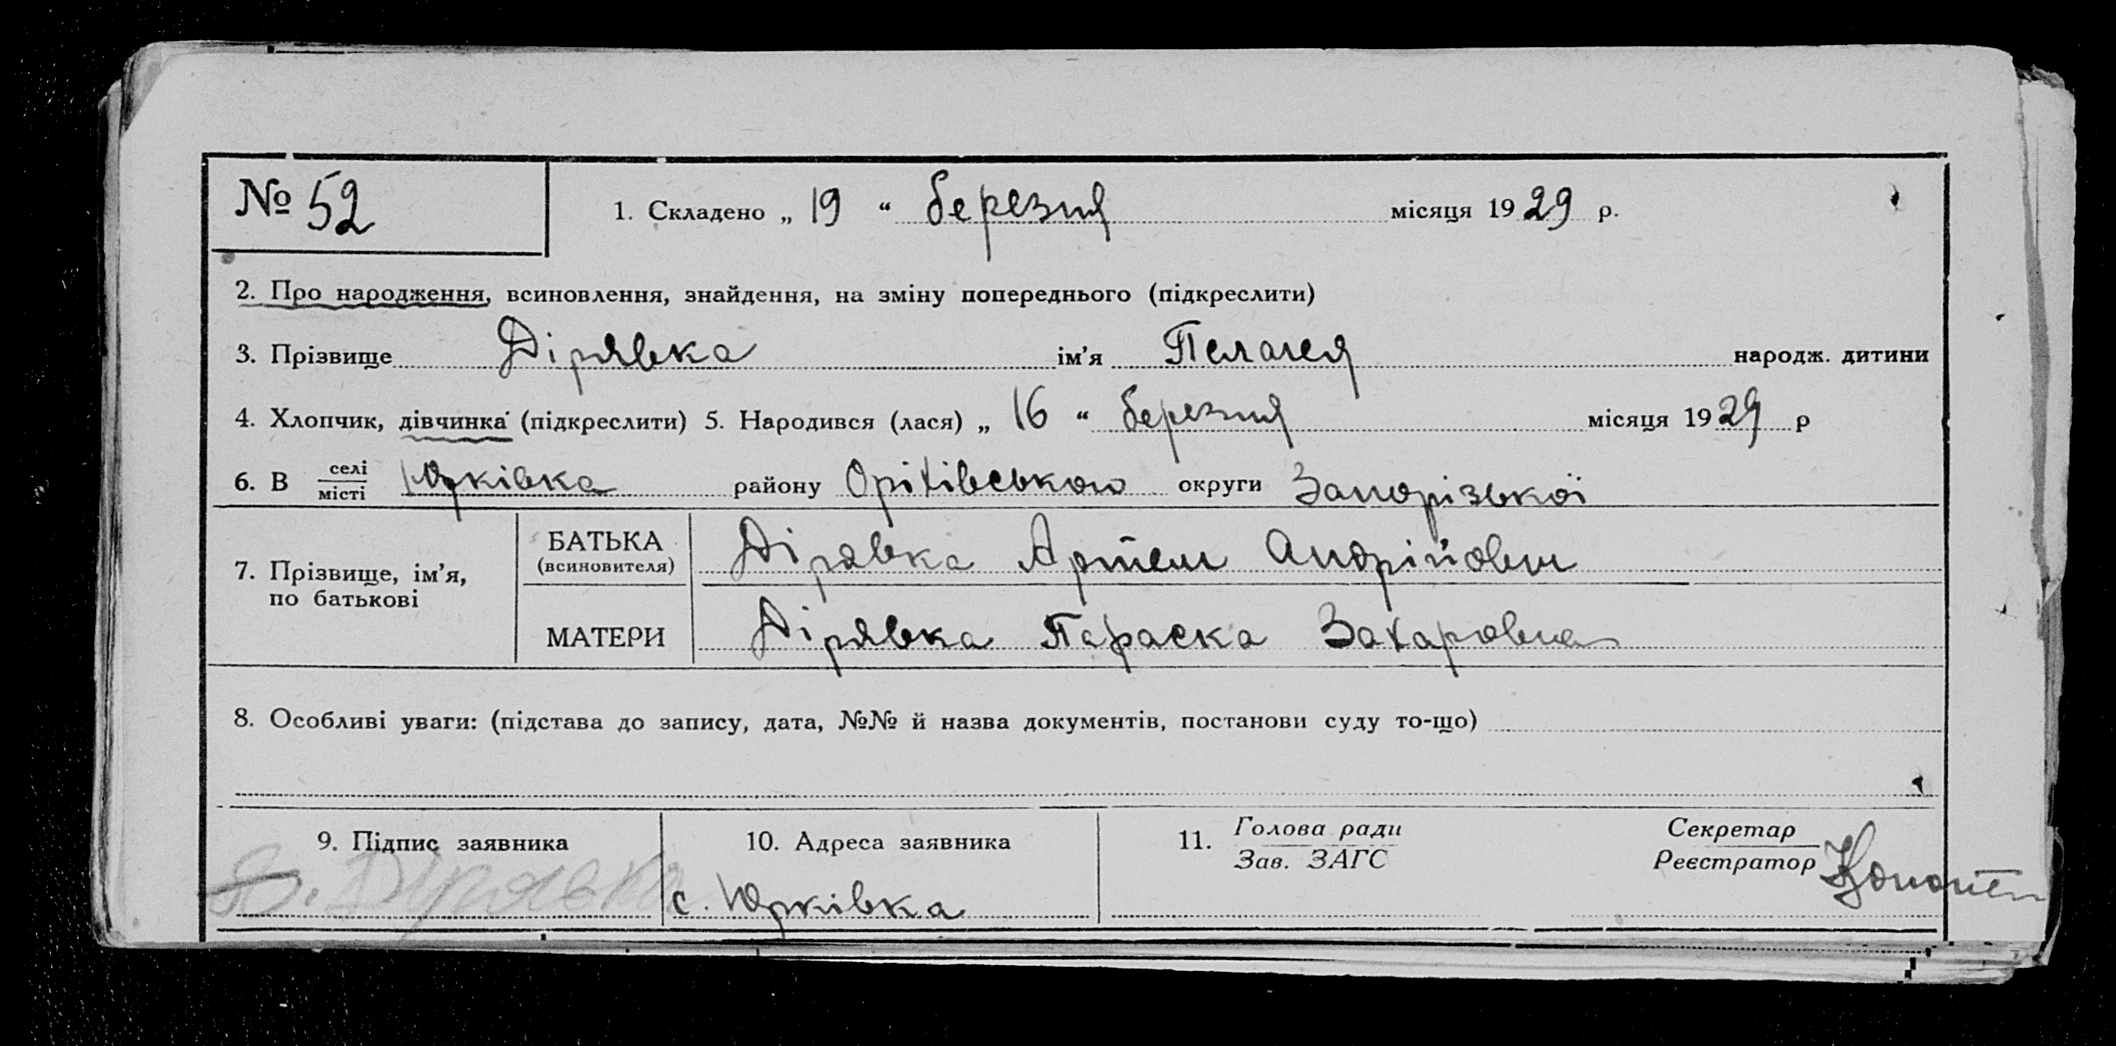 № 52
1. Складено „ 19 “ березня місяця 1929 р.
2. Про народження, всиновлення, знайдення, на зміну попереднього (підкреслити)
3. Прізвище Дірявка ім’я Пелагея народж. дитини
4. Хлопчик, дівчинка (підкреслити) 5. Народився (лася) „ 16 “ березня місяця 1929 р
6. В селі місті Юрківка району Оріхівського округи Запорізької
7. Прізвище, ім’я, по батькові
БАТЬКА (всиновителя) Дірявка Артем Андрійович
МАТЕРИ Дірявка Параска Захаровна
8. Особливі уваги: (підстава до запису, дата, №№ й назва документів, постанови суду то-що)
9. Підпис заявника
Дірявка
10. Адреса заявника
с. Юрківка
11. Голова ради
Зав. ЗАГС
Секретар
Реєстратор